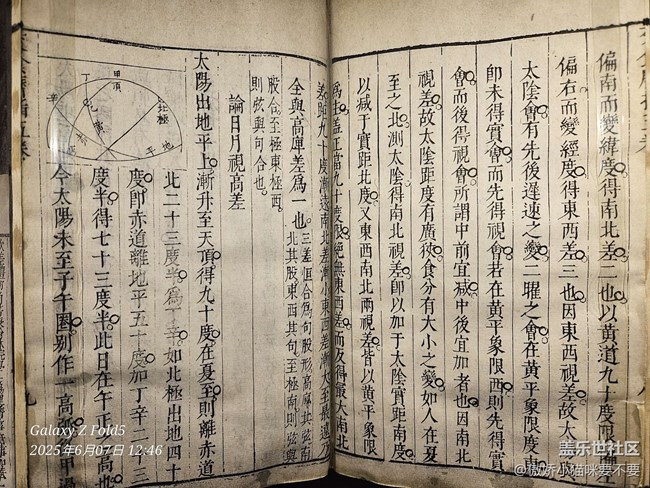 偏南而變緯度得南北差二也以黃道九十度限
偏右而變經度得東西差三也因東西視差故太
太陰會有先後遲速之變二曜之會在黃平象限度東
卽未得實會而先得視會若在黃平象限西則先得實
會而後得視會所謂中前宜減中後宜加者也因南北
視差故太陰距度有廣狹食分有大小之變如人在夏
至之北測太陰得南北視差卽以加于太陰實距南度
以減于實距北度又東西南北兩視差皆以黃平象限
爲主蓋正當九十度限絕無東西差而反得最大南北
差距九十度漸遠南北差漸小東西差漸大至最遠乃
全與高庫差爲一也三差恒合爲句股形高庫其弦南
北其股東西其句至極南則弦與
股合至極東極西
則弦與句合也
論日月視高差
太陽出地平上漸升至天頂得九十度在夏至則離赤道
北二十三度半爲丁辛如北極出地四十
度卽赤道離地平五十度加丁辛二十三
度半得七十三度半此日在午正之高也
今太陽未至子午圈別作一高
甲頂
北極
丁
地平
Galaxy Z Fold5
2025年6月07日 12:46
盖乐世社区
@傲娇小猫咪要不要